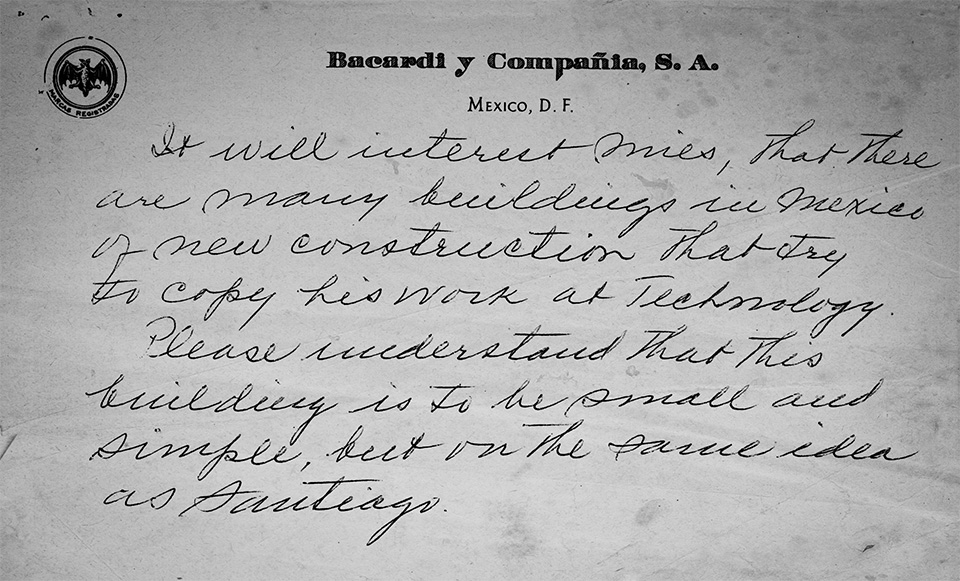 MARCAS REGISTRADAS
Bacardi y Compañia, S. A.
MEXICO, D. F.
It will interest Mies, that there
are many buildings in Mexico
of new construction that try
to copy his work at Technology.
Please understand that this
building is to be small and
simple, but on the same idea
as Santiago.